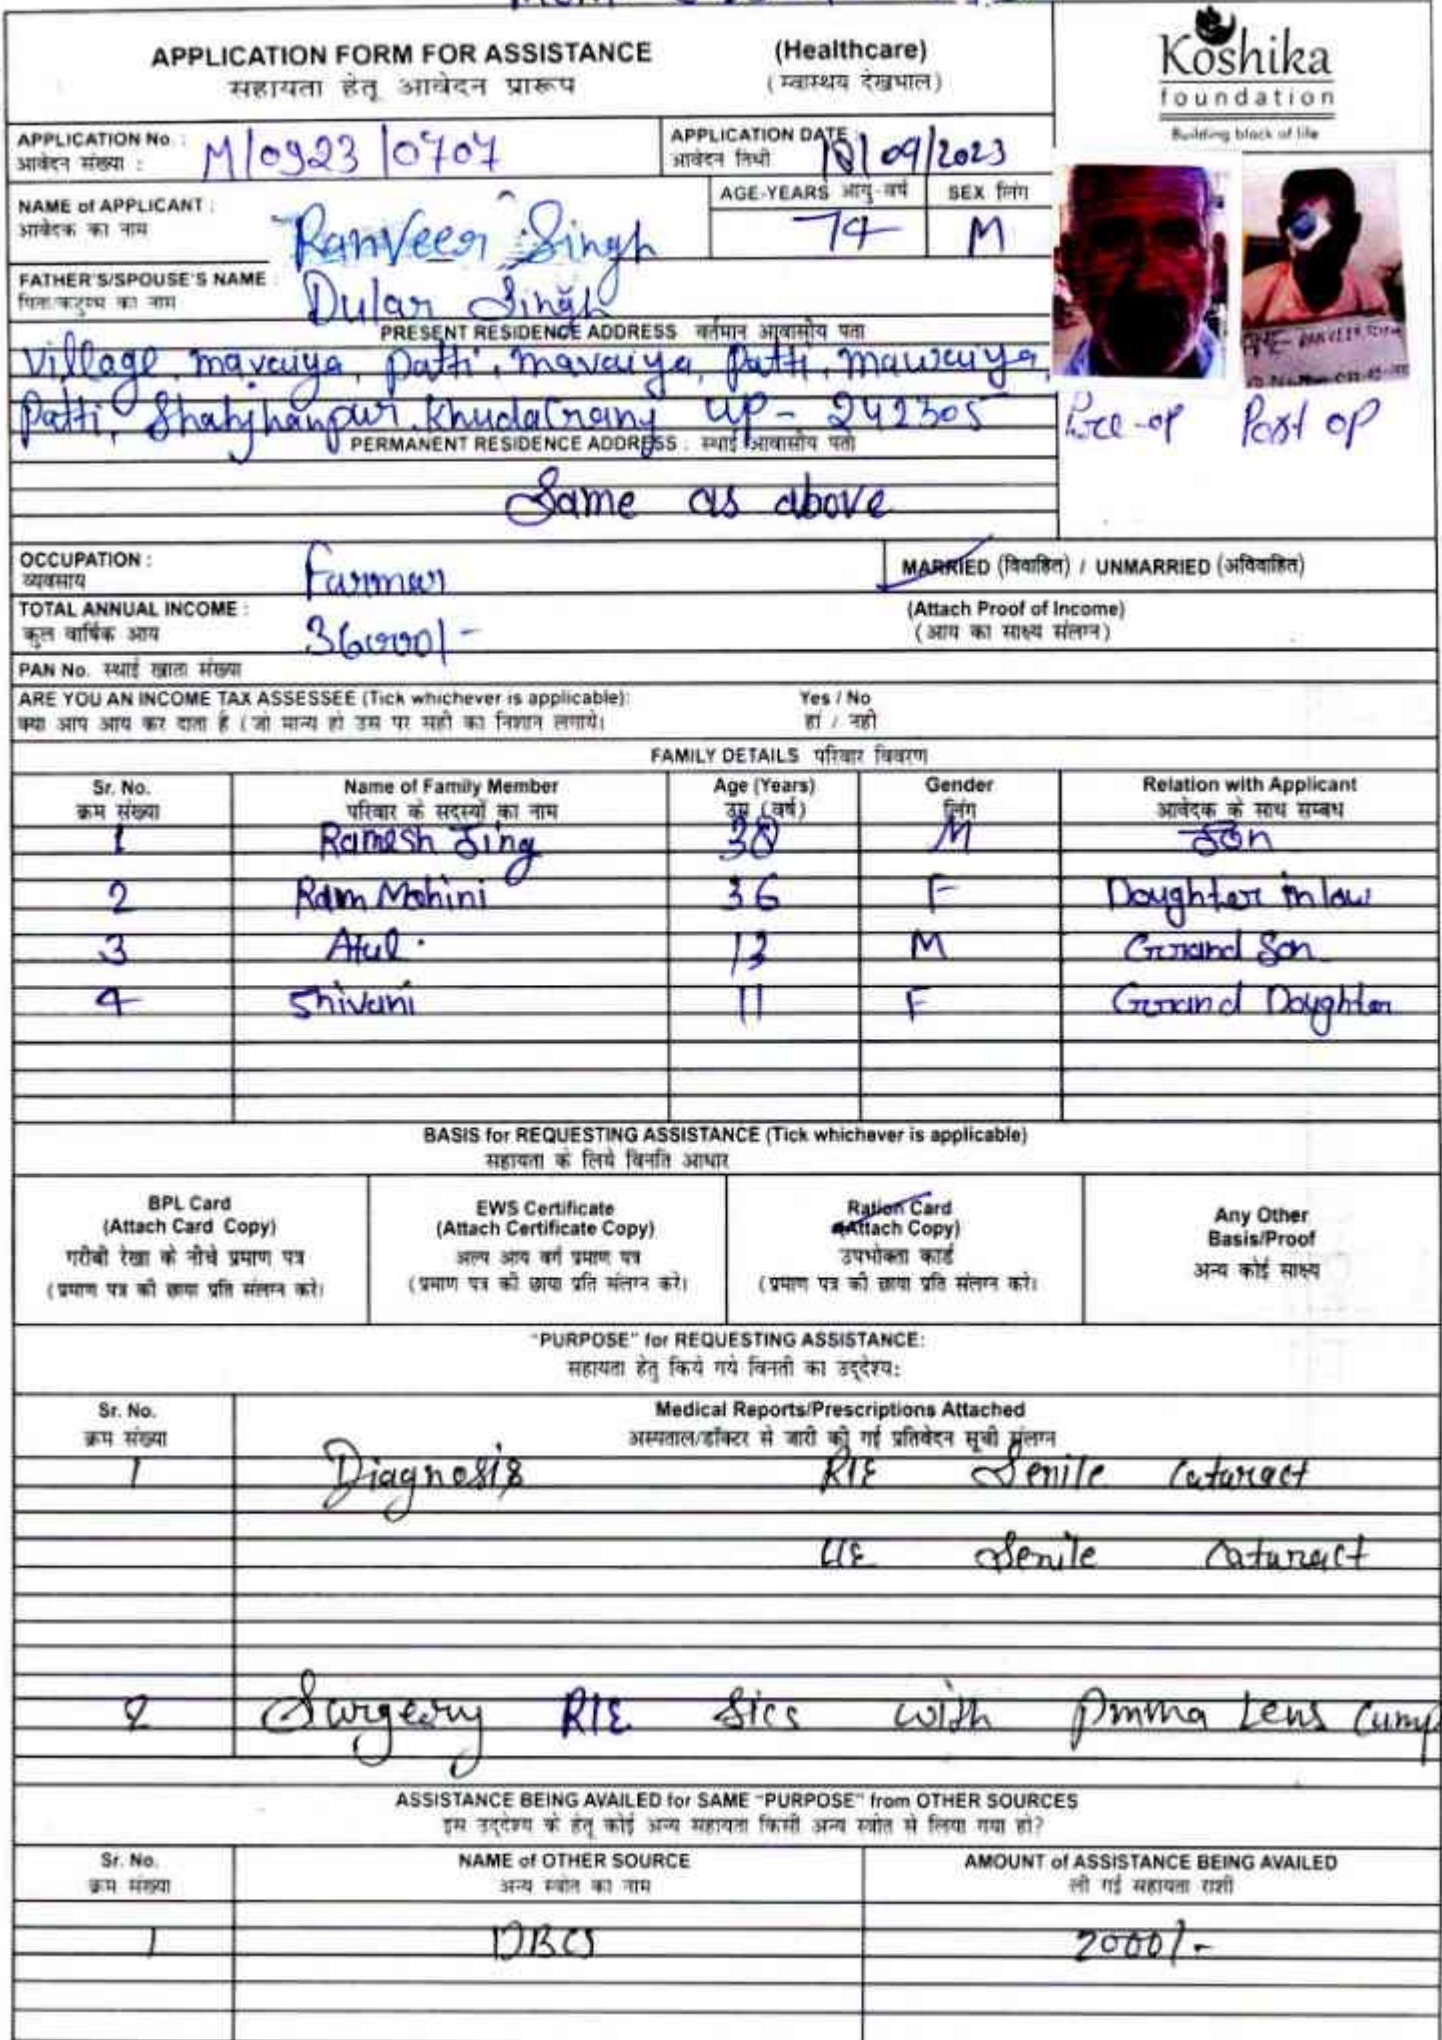 APPLICATION FORM FOR ASSISTANCE (Healthcare)
सहायता हेतू आवेदन प्रारूप (स्वास्थय देखभाल)
Koshika
foundation
Building block of life
APPLICATION No. : M/0923/0707
आवेदन संख्या :
APPLICATION DATE : /09/2023
आवेदन तिथी
NAME of APPLICANT : Ranveer Singh
आवेदक का नाम
AGE-YEARS आयु-वर्ष 74
SEX लिंग M
FATHER'S/SPOUSE'S NAME : Dular Singh
पिता/कटुम्ब का नाम
PRESENT RESIDENCE ADDRESS वर्तमान आवासीय पता
Village mavaiya, patti, mavaiya, patti, mawaiya,
Patti, Shahjhanpur, Khuda UP- 242305
PERMANENT RESIDENCE ADDRESS : स्थाई आवासीय पता
Same as above
Pre-op Post op
OCCUPATION : Farmer
व्यवसाय
MARRIED (विवाहित) / UNMARRIED (अविवाहित)
TOTAL ANNUAL INCOME : 36000/-
कुल वार्षिक आय
(Attach Proof of Income)
(आय का साक्ष्य संलग्न)
PAN No. स्थाई खाता संख्या
ARE YOU AN INCOME TAX ASSESSEE (Tick whichever is applicable): Yes / No
क्या आप आय कर दाता है (जो मान्य हो उस पर सही का निशान लगाये। हां / नही
FAMILY DETAILS परिवार विवरण
Sr. No. Name of Family Member Age (Years) Gender Relation with Applicant
क्रम संख्या परिवार के सदस्यों का नाम उम्र (वर्ष) लिंग आवेदक के साथ सम्बध
1 Ramesh Sing 38 M Son
2 Ram Mohini 36 F Doughter in law
3 Atul 13 M Grand Son
4 Shivani 11 F Grand Doughter
BASIS for REQUESTING ASSISTANCE (Tick whichever is applicable)
सहायता के लिये विनति आधार
BPL Card
(Attach Card Copy)
गरीबी रेखा के नीचे प्रमाण पत्र
(प्रमाण पत्र की छाया प्रति संलग्न करे।
EWS Certificate
(Attach Certificate Copy)
अल्प आय वर्ग प्रमाण पत्र
(प्रमाण पत्र की छाया प्रति संलग्न करे।
Ration Card
(Attach Copy)
उपभोक्ता कार्ड
(प्रमाण पत्र की छाया प्रति संलग्न करे।
Any Other
Basis/Proof
अन्य कोई साक्ष्य
"PURPOSE" for REQUESTING ASSISTANCE:
सहायता हेतु किये गये विनती का उद्देश्य:
Sr. No. Medical Reports/Prescriptions Attached
क्रम संख्या अस्पताल/डॉक्टर से जारी की गई प्रतिवेदन सूची संलग्न
1 Diagnosis R/E Senile Cataract
L/E Senile Cataract
2 Surgery R/E Sics with Pmma Lens
ASSISTANCE BEING AVAILED for SAME "PURPOSE" from OTHER SOURCES
इस उद्देश्य के हेतू कोई अन्य सहायता किसी अन्य स्त्रोत से लिया गया हो?
Sr. No. NAME of OTHER SOURCE AMOUNT of ASSISTANCE BEING AVAILED
क्रम संख्या अन्य स्त्रोत का नाम ली गई सहायता राशी
1 DBCS 2000/-